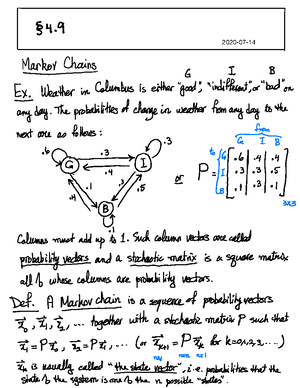 §4.9
2020-07-14
Markov Chains
G I B
Ex. Weather in Columbus is either "good", "indifferent", or "bad" on
any day. The probabilities of change in weather from any day to the
next are as follows:
from
to G I B
.6 G .3 I .3
.4
.1 .4 .3 .5
B
.1
or P = G I B [ .6 .4 .4
.3 .3 .5
.1 .3 .1 ]
3x3
Columns must add up to 1. Such column vectors are called
probability vectors and a stochastic matrix is a square matrix
all of whose columns are probability vectors.
Def. A Markov chain is a sequence of probability vectors
x₀, x₁, x₂, ... together with a stochastic matrix P such that
x₁ = Px₀, x₂ = Px₁, ... (or xₖ₊₁ = Pxₖ for k=0,1,2,...)
nx1 nxn nx1
xₖ is usually called "the state vector", i.e. probabilities that the
state of the system is one of the n possible "states".